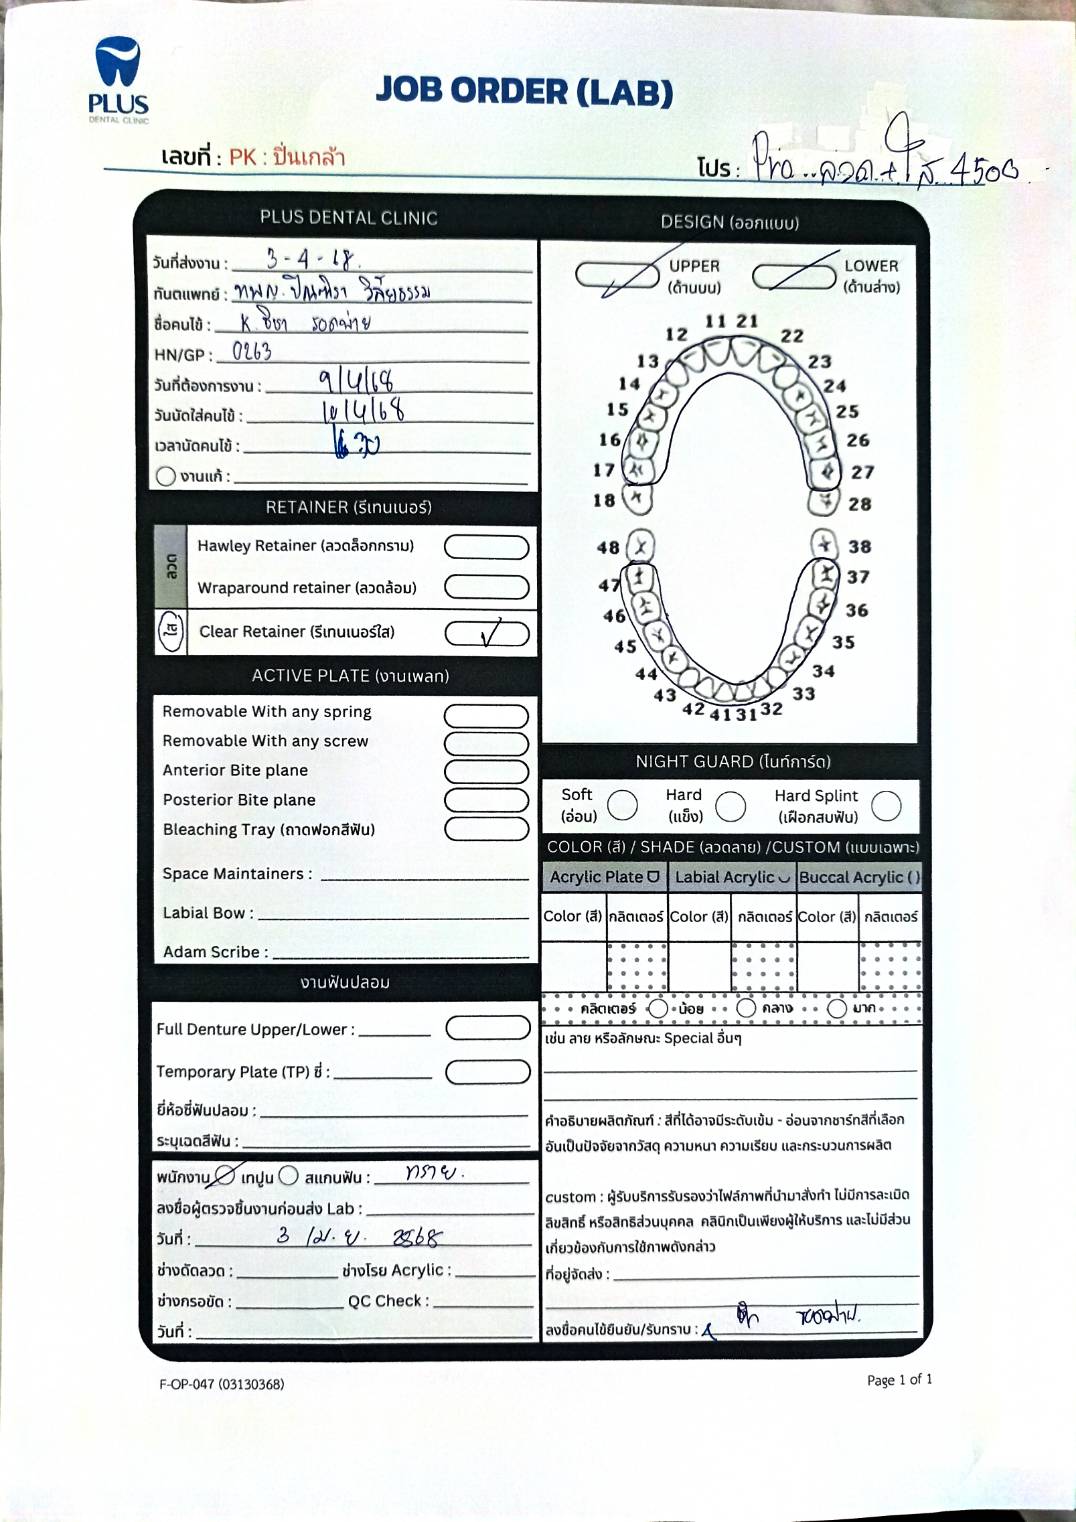 PLUS
DENTAL CLINIC
JOB ORDER (LAB)
เลขที่ : PK : ปิ่นเกล้า
โปร : Pro ลวด + ใส 4500
PLUS DENTAL CLINIC
วันที่ส่งงาน : 3-4-68
ทันตแพทย์ : ทพญ. ปัณฑิรา วิลัยธรรม
ชื่อคนไข้ : K. ชิชา รอดพ่าย
HN/GP : 0263
วันที่ต้องการงาน : 9/4/68
วันนัดใส่คนไข้ : 10/4/68
เวลานัดคนไข้ :
งานแก้ :
RETAINER (รีเทนเนอร์)
ลวด
Hawley Retainer (ลวดล็อกกราม)
Wraparound retainer (ลวดล้อม)
ใส
Clear Retainer (รีเทนเนอร์ใส)
ACTIVE PLATE (งานเพลท)
Removable With any spring
Removable With any screw
Anterior Bite plane
Posterior Bite plane
Bleaching Tray (ถาดฟอกสีฟัน)
Space Maintainers :
Labial Bow :
Adam Scribe :
งานฟันปลอม
Full Denture Upper/Lower :
Temporary Plate (TP) ซี่ :
ยี่ห้อซี่ฟันปลอม :
ระบุเฉดสีฟัน :
พนักงาน เทปูน สแกนฟัน : ทราย.
ลงชื่อผู้ตรวจชิ้นงานก่อนส่ง Lab :
วันที่ : 3 เม.ย. 2568
ช่างดัดลวด : ช่างโรย Acrylic :
ช่างกรอขัด : QC Check :
วันที่ :
DESIGN (ออกแบบ)
UPPER
(ด้านบน)
LOWER
(ด้านล่าง)
11 21
12 22
13 23
14 24
15 25
16 26
17 27
18 28
48 38
47 37
46 36
45 35
44 34
43 33
42 41 31 32
NIGHT GUARD (ไนท์การ์ด)
Soft
(อ่อน)
Hard
(แข็ง)
Hard Splint
(เฝือกสบฟัน)
COLOR (สี) / SHADE (ลวดลาย) /CUSTOM (แบบเฉพาะ)
Acrylic Plate Labial Acrylic Buccal Acrylic ( )
Color (สี) กลิตเตอร์ Color (สี) กลิตเตอร์ Color (สี) กลิตเตอร์
กลิตเตอร์ น้อย กลาง มาก
เช่น ลาย หรือลักษณะ Special อื่นๆ
คำอธิบายผลิตภัณฑ์ : สีที่ได้อาจมีระดับเข้ม - อ่อนจากชาร์ทสีที่เลือก
อันเป็นปัจจัยจากวัสดุ ความหนา ความเรียบ และกระบวนการผลิต
custom : ผู้รับบริการรับรองว่าไฟล์ภาพที่นำมาสั่งทำ ไม่มีการละเมิด
ลิขสิทธิ์ หรือสิทธิส่วนบุคคล คลินิกเป็นเพียงผู้ให้บริการ และไม่มีส่วน
เกี่ยวข้องกับการใช้ภาพดังกล่าว
ที่อยู่จัดส่ง :
ลงชื่อคนไข้ยืนยัน/รับทราบ :
F-OP-047 (03130368)
Page 1 of 1